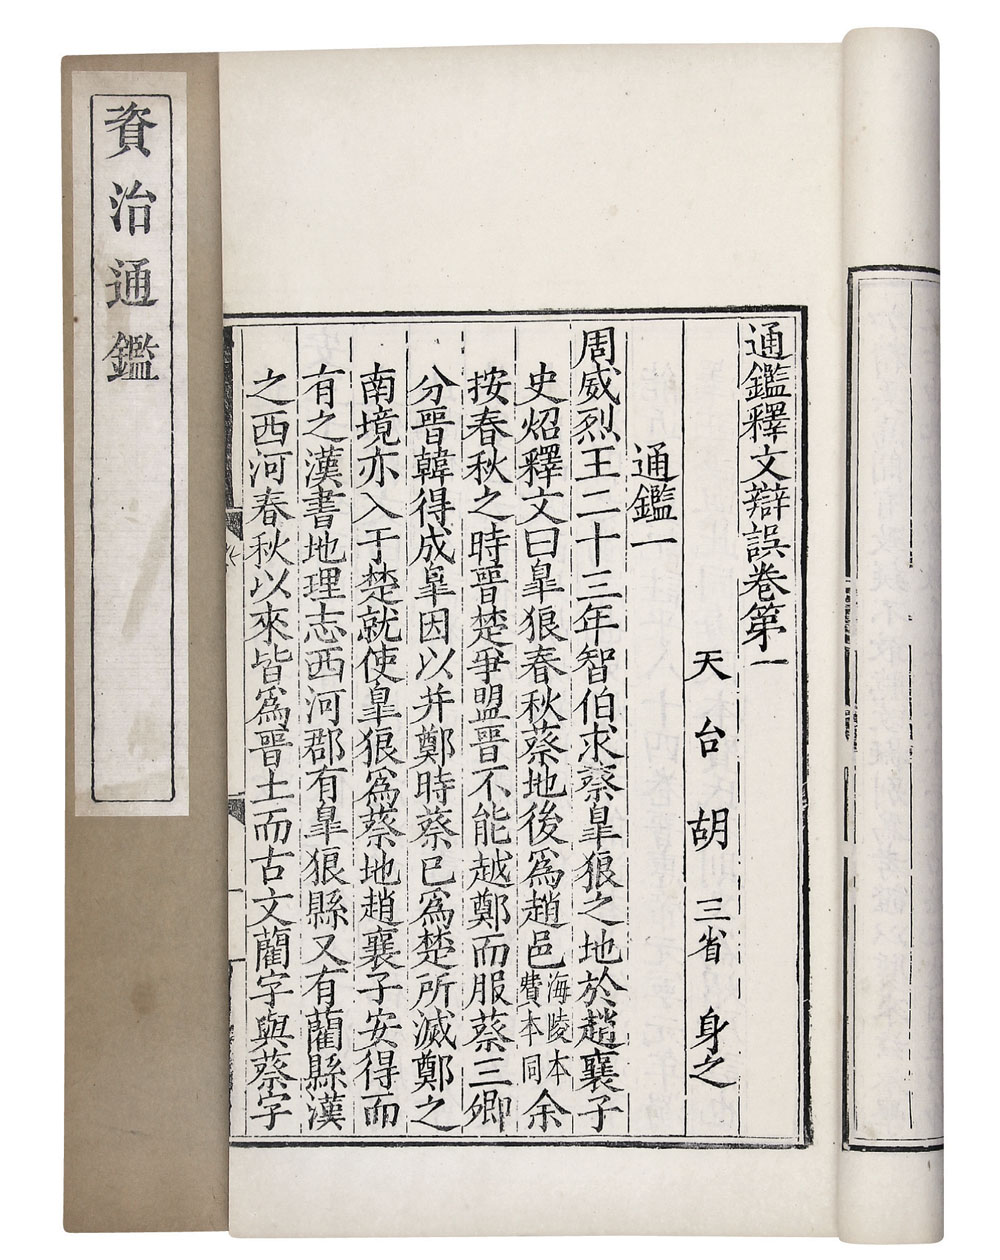 資治通鑑
通鑑釋文辯誤卷第一
天台胡三省身之
通鑑一
周威烈王二十三年智伯求蔡皐狼之地於趙襄子
史炤釋文曰皐狼春秋蔡地後爲趙邑海陵本費本同余
按春秋之時晉楚爭盟晉不能越鄭而服蔡三卿
分晉韓得成皐因以并鄭時蔡已爲楚所滅鄭之
南境亦入于楚就使皐狼爲蔡地趙襄子安得而
有之漢書地理志西河郡有皐狼縣又有藺縣漢
之西河春秋以來皆爲晉土而古文藺字與蔡字